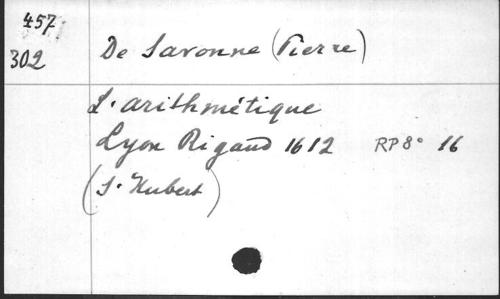 457
302
De Savonne (Pierre)
L'arithmétique
Lyon Rigaud 1612 RP 8° 16
(S. Hubert)